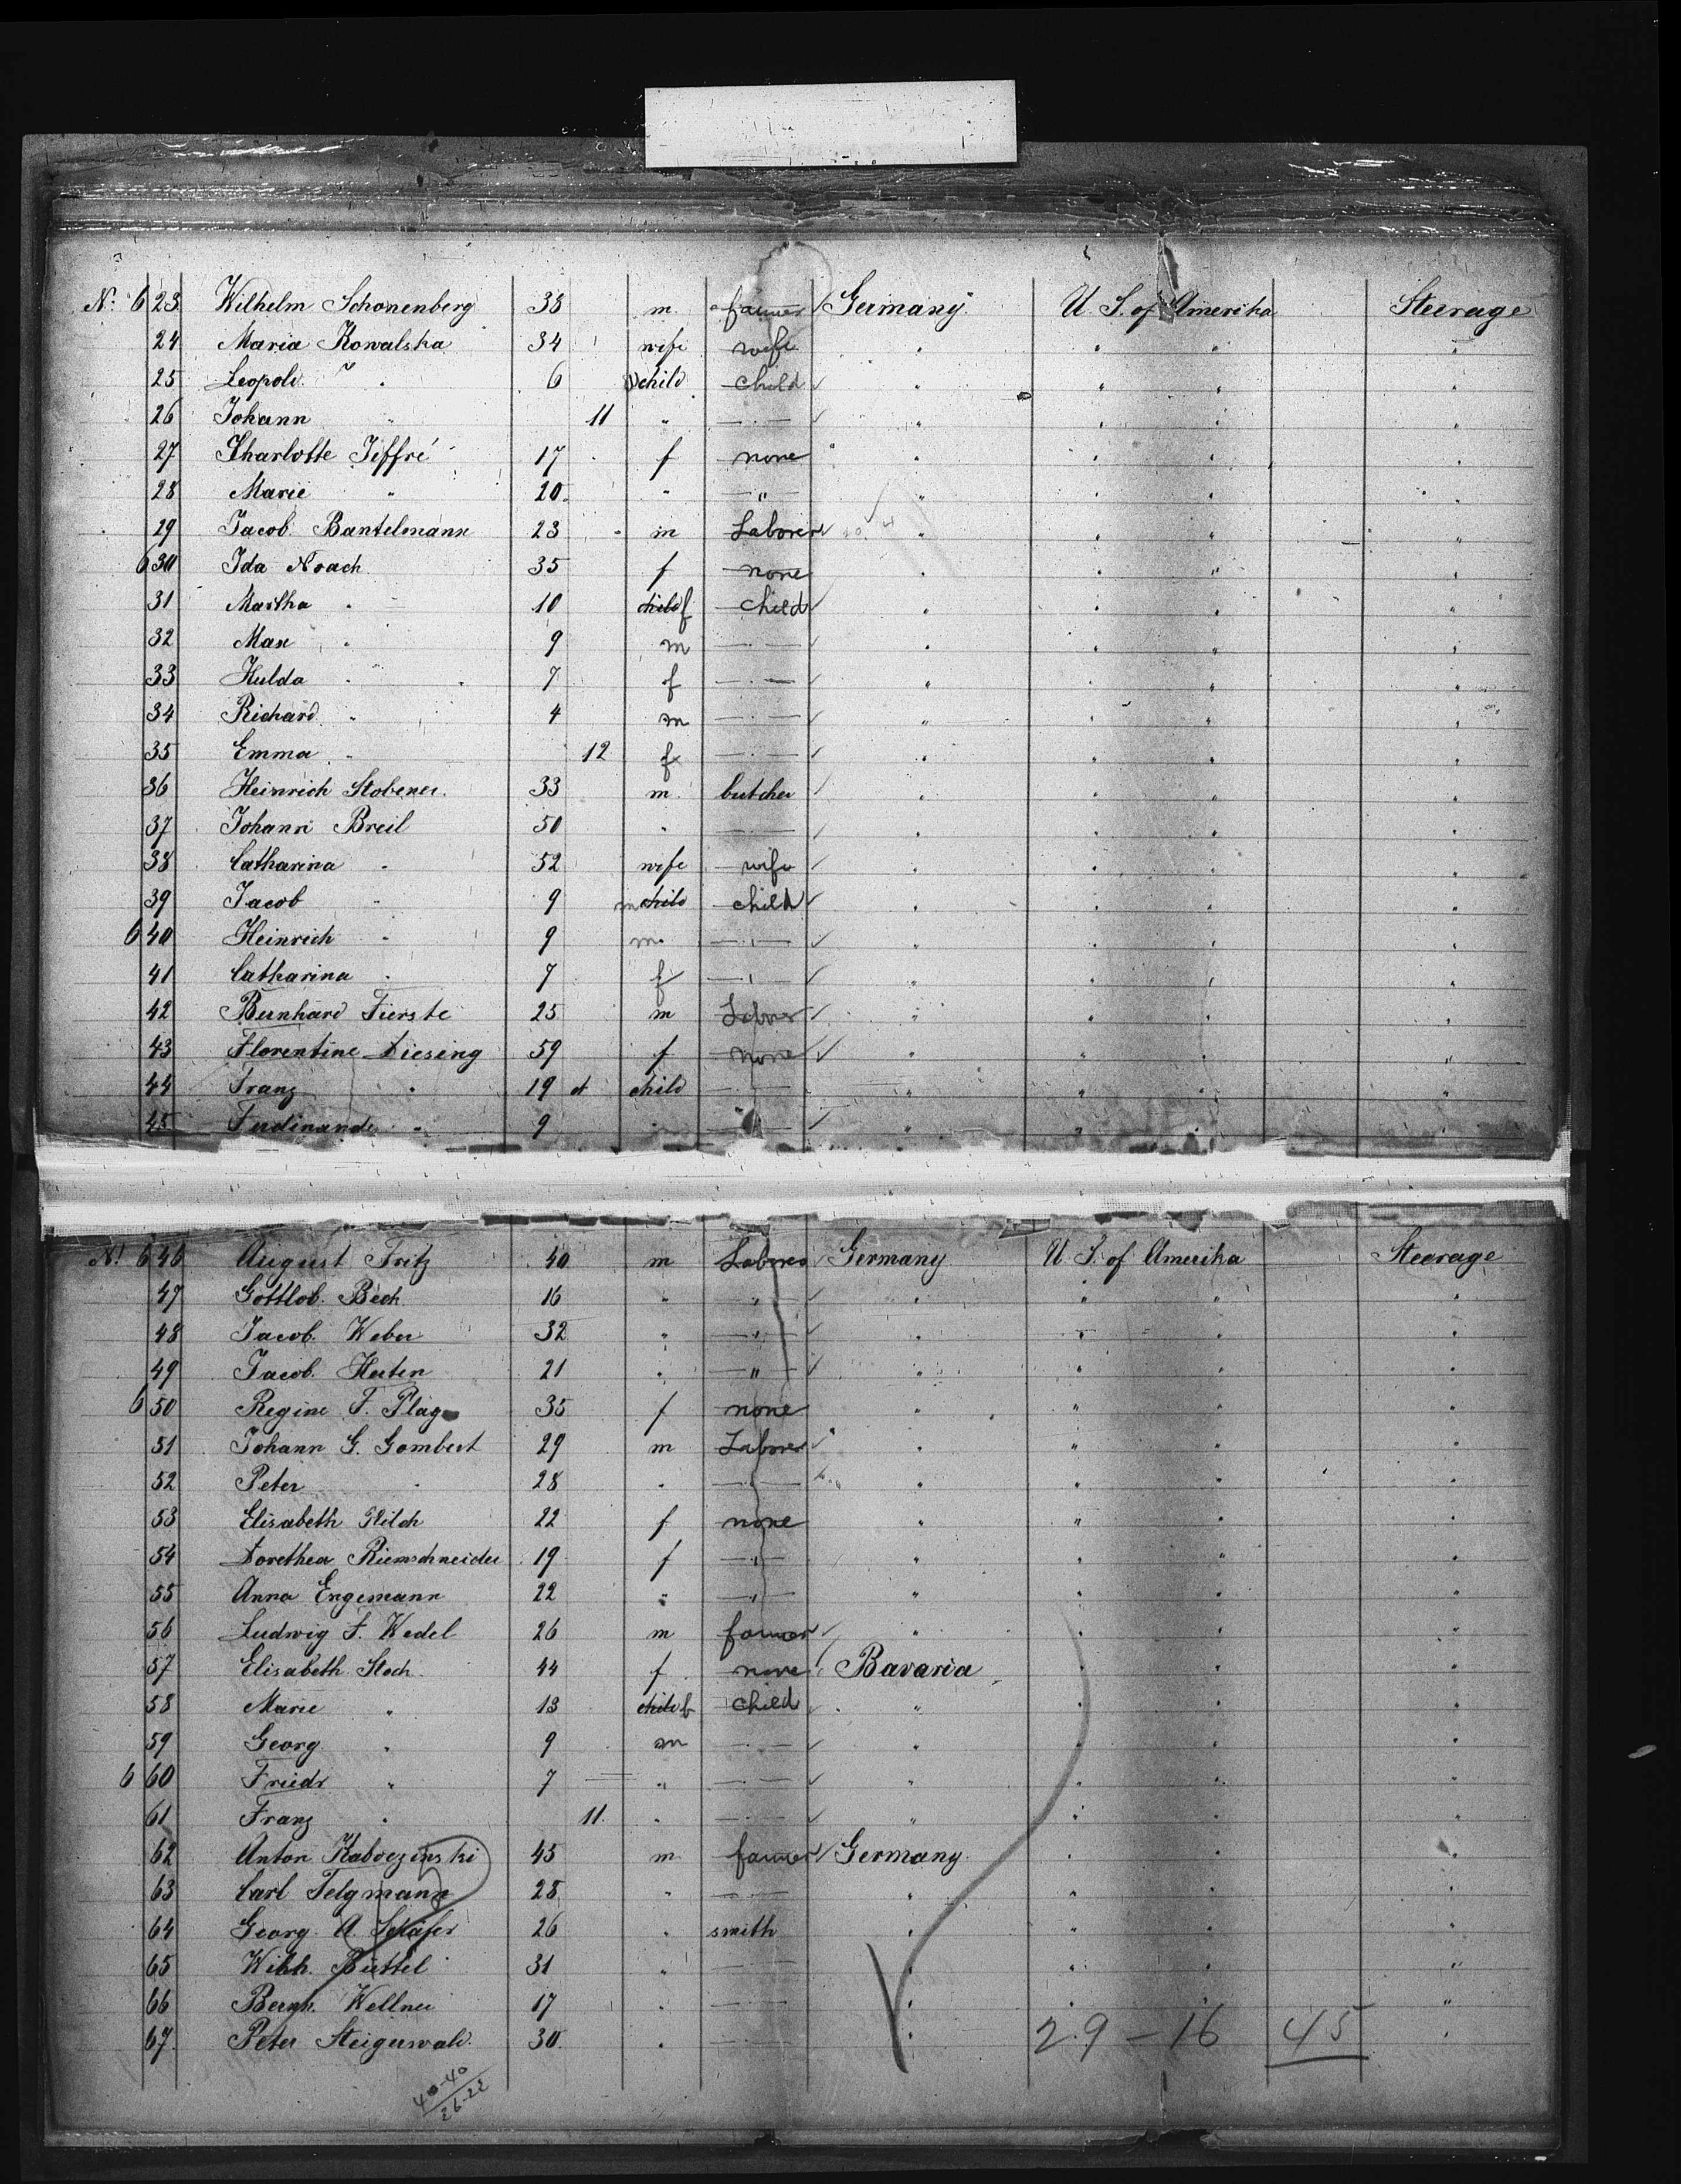 No. 623 Wilhelm Schonenberg 33 m farmer Germany U. S. of Amerika Steerage
24 Maria Kowalska 34 wife wife " " " "
25 Leopold " 6 child child " " " "
26 Johann " 11 " " " " " "
27 Charlotte Jiffré 17 f none " " " "
28 Marie " 20 " " " " " "
29 Jacob Bantelmann 23 m Laborer " " " "
630 Ida Noach 35 f none " " " "
31 Martha " 10 child f child " " " "
32 Max " 9 m " " " " "
33 Hulda " 7 f " " " " "
34 Richard " 4 m " " " " "
35 Emma " 12 f " " " " "
36 Heinrich Stobener 33 m butcher " " " "
37 Johann Breil 50 " " " " " "
38 Catharina " 52 wife wife " " " "
39 Jacob " 9 m child child " " " "
640 Heinrich " 9 m " " " " "
41 Catharina " 7 f " " " " "
42 Bernhard Fierste 25 m Laborer " " " "
43 Florentine Diesing 59 f none " " " "
44 Franz " 19 child " " " " "
45 Ferdinande " 9 " " " " " "
No. 646 August Fritz 40 m Laborer Germany U. S. of Amerika Steerage
47 Gottlob Bech 16 " " " " " "
48 Jacob Weber 32 " " " " " "
49 Jacob Huten 21 " " " " " "
650 Regine F. Plag 35 f none " " " "
51 Johann G. Gombert 29 m Laborer " " " "
52 Peter " 28 " " " " " "
53 Elisabeth Hilch 22 f none " " " "
54 Dorethea Riemschneider 19 f " " " " "
55 Anna Engemann 22 " " " " " "
56 Ludwig F. Wedel 26 m farmer " " " "
57 Elisabeth Stoch 44 f none Bavaria " " "
58 Marie " 13 child f child " " " "
59 Georg " 9 m " " " " "
660 Friedr " 7 " " " " " "
61 Franz " 11 " " " " " "
62 Anton Kaboczinski 45 m farmer Germany " " "
63 Carl Telgmann 28 " " " " " "
64 Georg A. Schäfer 26 " smith " " " "
65 Wilh. Büttel 31 " " " " " "
66 Bernh. Wellner 17 " " " " " "
67 Peter Steigerwald 30 " " " 29 - 16 45 "
40-40
26-22